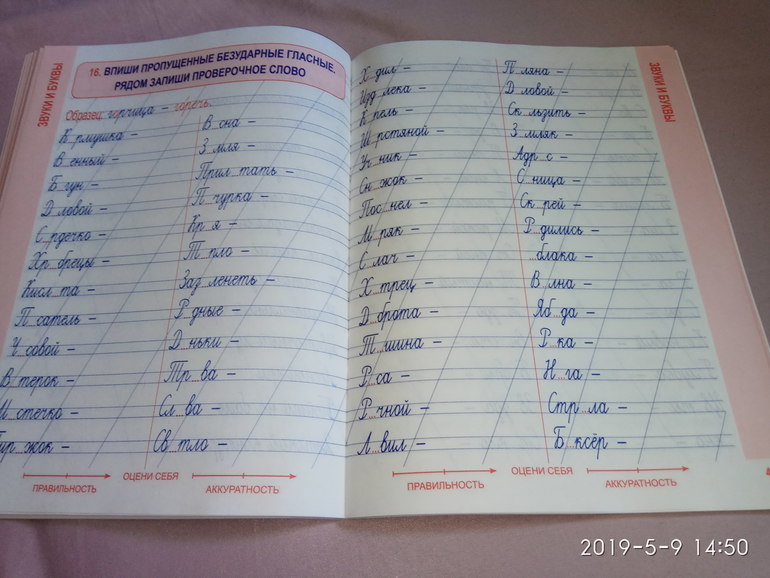 ЗВУКИ И БУКВЫ
16. ВПИШИ ПРОПУЩЕННЫЕ БЕЗУДАРНЫЕ ГЛАСНЫЕ.
РЯДОМ ЗАПИШИ ПРОВЕРОЧНОЕ СЛОВО
Образец: горчица – горечь.
К рмушка –
В енный –
Б гун –
Д ловой –
С...рдечко –
Хр брецы –
Кисл та –
П сатель –
Ч совой –
В терок –
М стечко –
Пир жок –
В сна –
З мля –
Прил тать –
П чурка –
Кр я –
Т пло –
Заз ленеть –
Р дные –
Д ньки –
Тр...ва –
Сл...ва –
Св тло –
ПРАВИЛЬНОСТЬ
ОЦЕНИ СЕБЯ
АККУРАТНОСТЬ
Х дил –
Изд лека –
К пель –
Ш рстяной –
Уч ник –
Сн жок –
Пос нел –
М ряк –
С лач –
Х трец –
Д...брота –
Т...шина –
Р...са –
Р...чной –
Л...вил –
П ляна –
Д ловой –
Ск льзить –
З мляк –
Адр с –
С ница –
Ск рей –
Р дились –
...блака –
В лна –
Яб да –
Р...ка –
Н...га –
Стр...ла –
Б ксёр –
ПРАВИЛЬНОСТЬ
ОЦЕНИ СЕБЯ
АККУРАТНОСТЬ
ЗВУКИ И БУКВЫ
2019-5-9 14:50